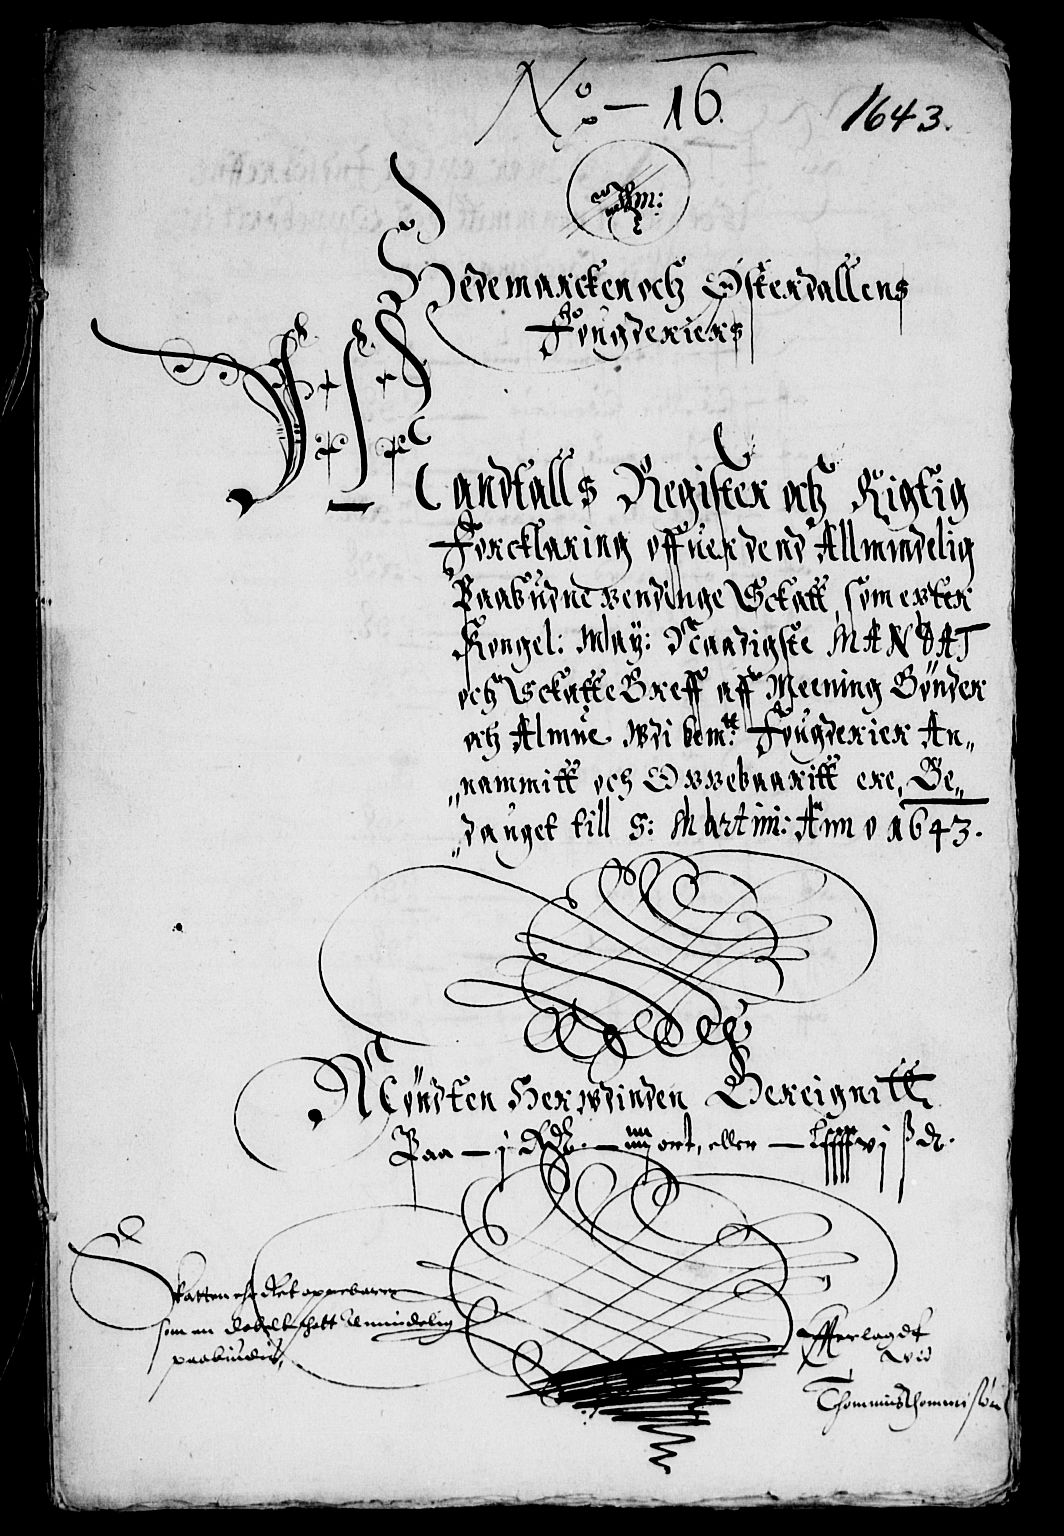 No – 16.
1643.
Hedemarcken och Østerdallens
Fougderiers
Landtalls Register och Rigtig
Forcklaring offuer dend Allmindelig
Paabudne Pendinge Schatt, som epter
Kongel: May: Naadigste MANDAT
och Schatte Breff aff Meening Bønder
och Almue Wdi bemte: Fougderier An„
„nammitt och Oppebaaritt ere, Be„
„daget till S: Martini: Anno 1643.
Befündten Herwdinden Bereignitt
Paa – j Rdr. – ort, eller – ß d.
Skatten ehr Ret oppebaaren
som en Schatt Almindelig
paabuden,
Offerlagdt
Wid
Thommis Thommissøn